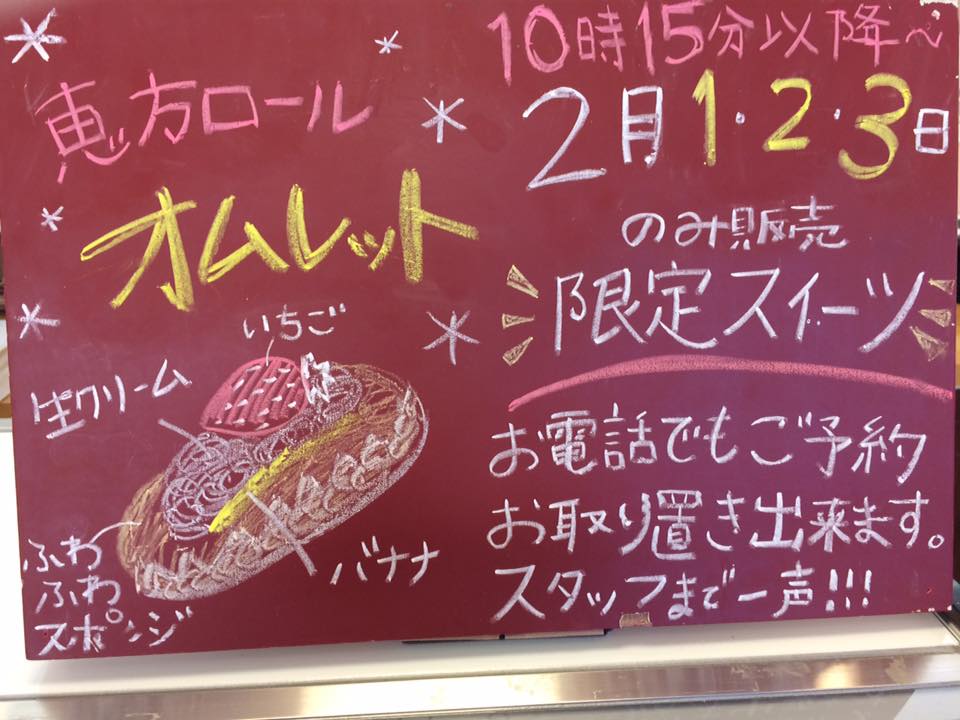 恵方ロール
オムレット
いちご
生クリーム
バナナ
ふわ
ふわ
スポンジ
10時15分以降～
2月1・2・3日
のみ販売
限定スイーツ
お電話でもご予約
お取り置き出来ます。
スタッフまで一声!!!